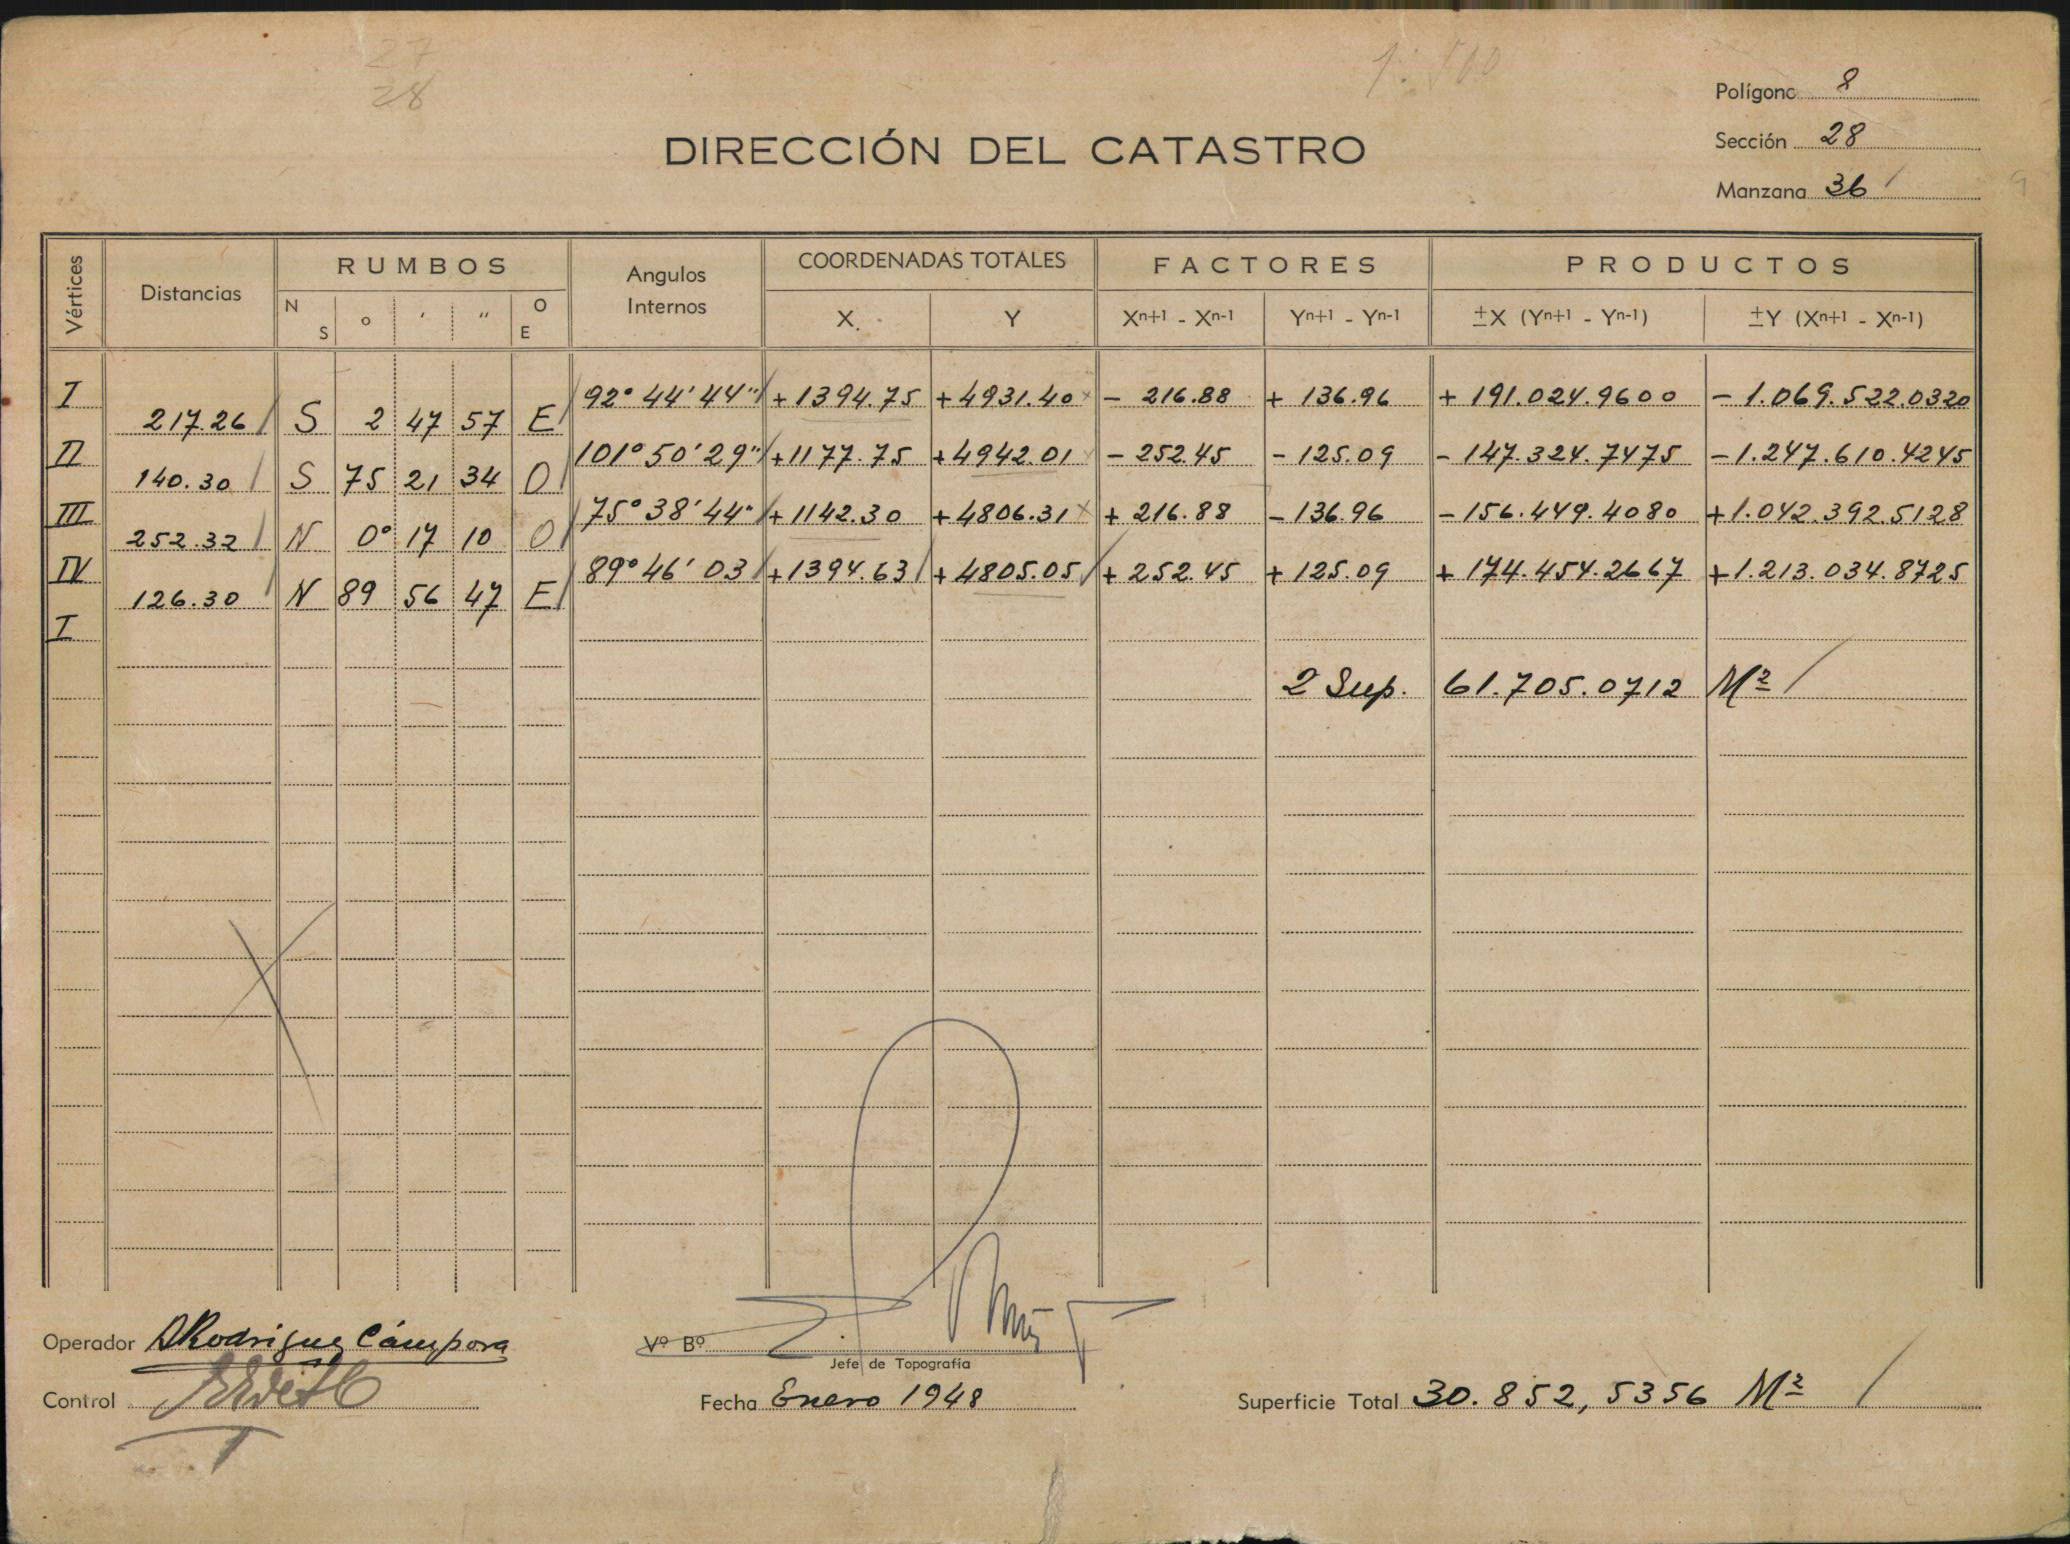 27
28
1:500
Polígono 8
Sección 28
Manzana 36
9
DIRECCIÓN DEL CATASTRO
Vértices Distancias RUMBOS Angulos Internos COORDENADAS TOTALES FACTORES PRODUCTOS
N S o ' " O E X Y Xn+1 - Xn-1 Yn+1 - Yn-1 ±X (Yn+1 - Yn-1) ±Y (Xn+1 - Xn-1)
I 92° 44' 44" +1394.75 +4931.40 - 216.88 + 136.96 + 191.024.9600 - 1.069.522.0320
217.26 S 2 47 57 E
II 101° 50' 29" +1177.75 +4942.01 - 252.45 - 125.09 - 147.324.7475 - 1.247.610.4245
140.30 S 75 21 34 O
III 75° 38' 44" +1142.30 +4806.31 + 216.88 - 136.96 - 156.449.4080 +1.042.392.5128
252.32 N 0° 17 10 O
IV 89° 46' 03 +1394.63 +4805.05 + 252.45 + 125.09 + 174.454.2667 +1.213.034.8725
126.30 N 89 56 47 E
I
2 Sup. 61.705.0712 M²
Operador Rodriguez Cámpora
Vº Bº
Jefe de Topografía
Control
Fecha Enero 1948
Superficie Total 30.852,5356 M²